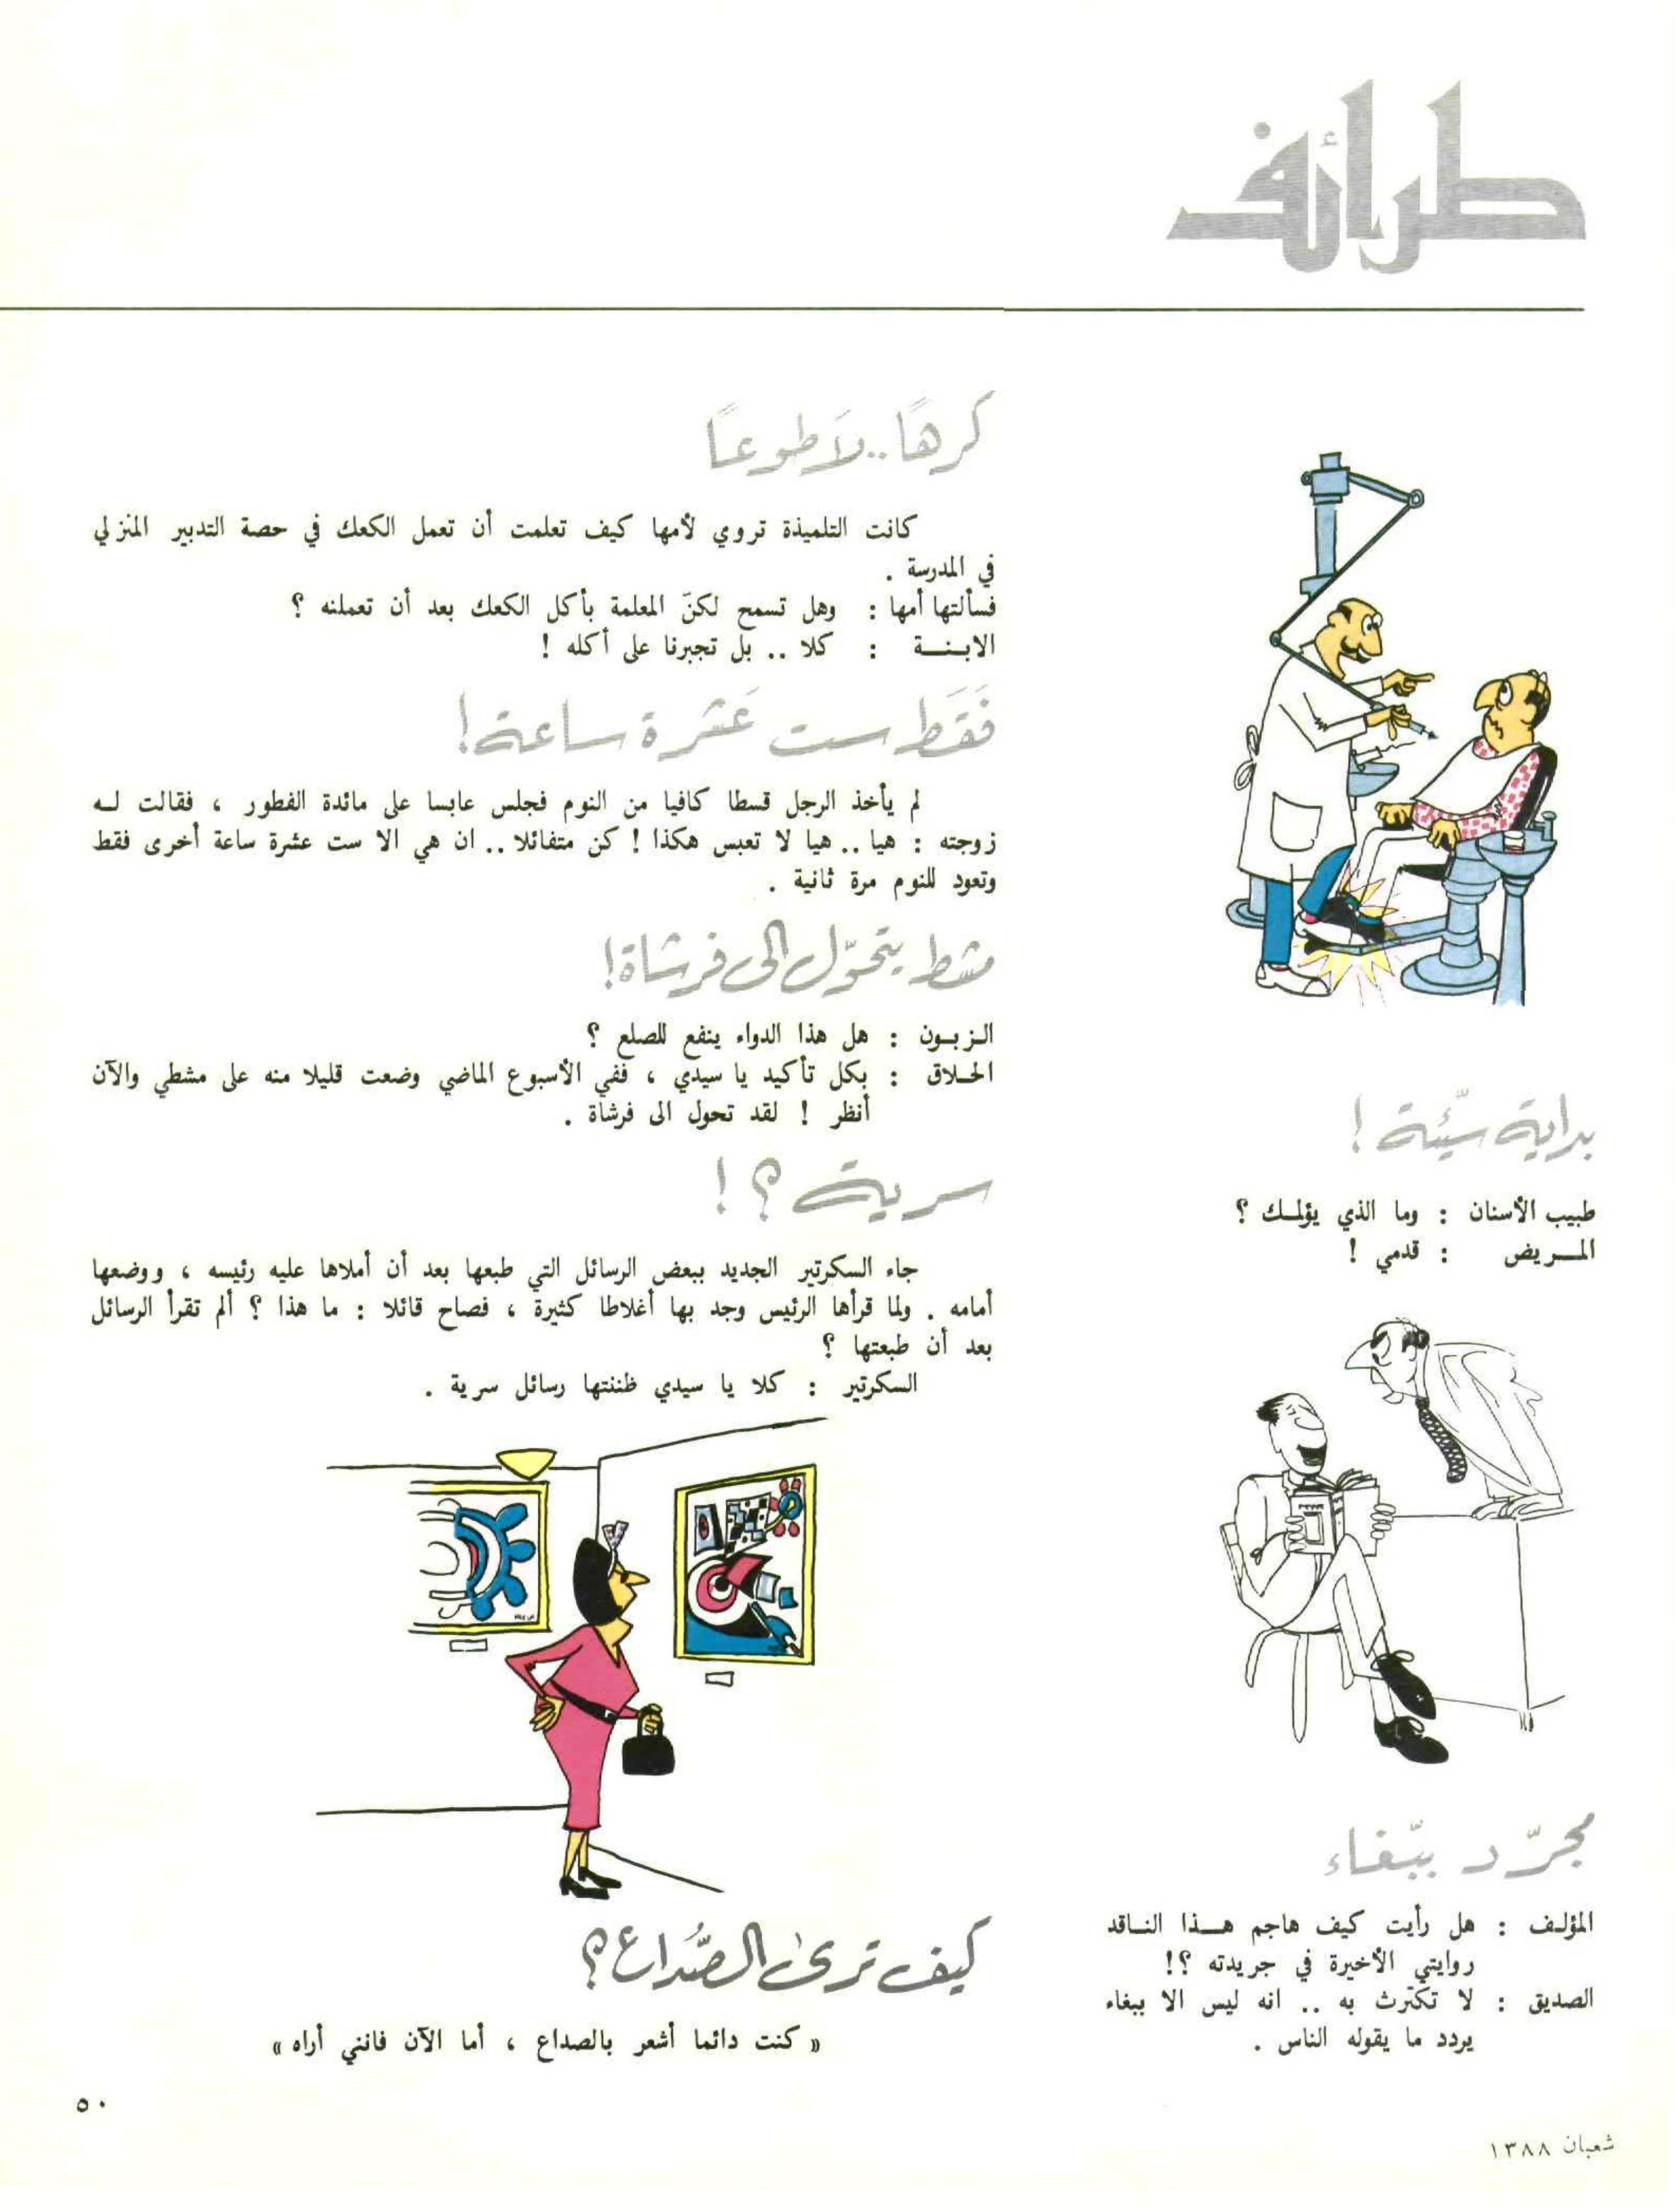 طرائف
كرهًا.. لَا طوعًا
كانت التلميذة تروي لأمها كيف تعلمت أن تعمل الكعك في حصة التدبير المنزلي
في المدرسة .
فسألتها أمها : وهل تسمح لكنّ المعلمة بأكل الكعك بعد أن تعملنه ؟
الابـنــة : كلا .. بل تجبرنا على أكله !
فَقَط ست عَشرة ساعة !
لم يأخذ الرجل قسطا كافيا من النوم فجلس عابسا على مائدة الفطور ، فقالت لـه
زوجته : هيا .. هيا لا تعبس هكذا ! كن متفائلا .. ان هي الا ست عشرة ساعة أخرى فقط
وتعود للنوم مرة ثانية .
مشط يتحوّل الى فرشاة !
الـزبـون : هل هذا الدواء ينفع للصلع ؟
الحـلاق : بكل تأكيد يا سيدي ، ففي الأسبوع الماضي وضعت قليلا منه على مشطي والآن
أنظر ! لقد تحول الى فرشاة .
سرية ؟ !
جاء السكرتير الجديد ببعض الرسائل التي طبعها بعد أن أملاها عليه رئيسه ، ووضعها
أمامه . ولما قرأها الرئيس وجد بها أغلاطا كثيرة ، فصاح قائلا : ما هذا ؟ ألم تقرأ الرسائل
بعد أن طبعتها ؟
السكرتير : كلا يا سيدي ظننتها رسائل سرية .
كيف ترى الصُّداع ؟
« كنت دائما أشعر بالصداع ، أما الآن فانني أراه »
بداية سيّئة !
طبيب الأسنان : وما الذي يؤلمـك ؟
المــريض : قدمي !
مجرّد ببّغاء
المؤلـف : هل رأيت كيف هاجم هــذا النـاقد
روايتي الأخيرة في جريدته ؟!
الصديق : لا تكترث به .. انه ليس الا ببغاء
يردد ما يقوله الناس .
٥٠
شعبان ١٣٨٨